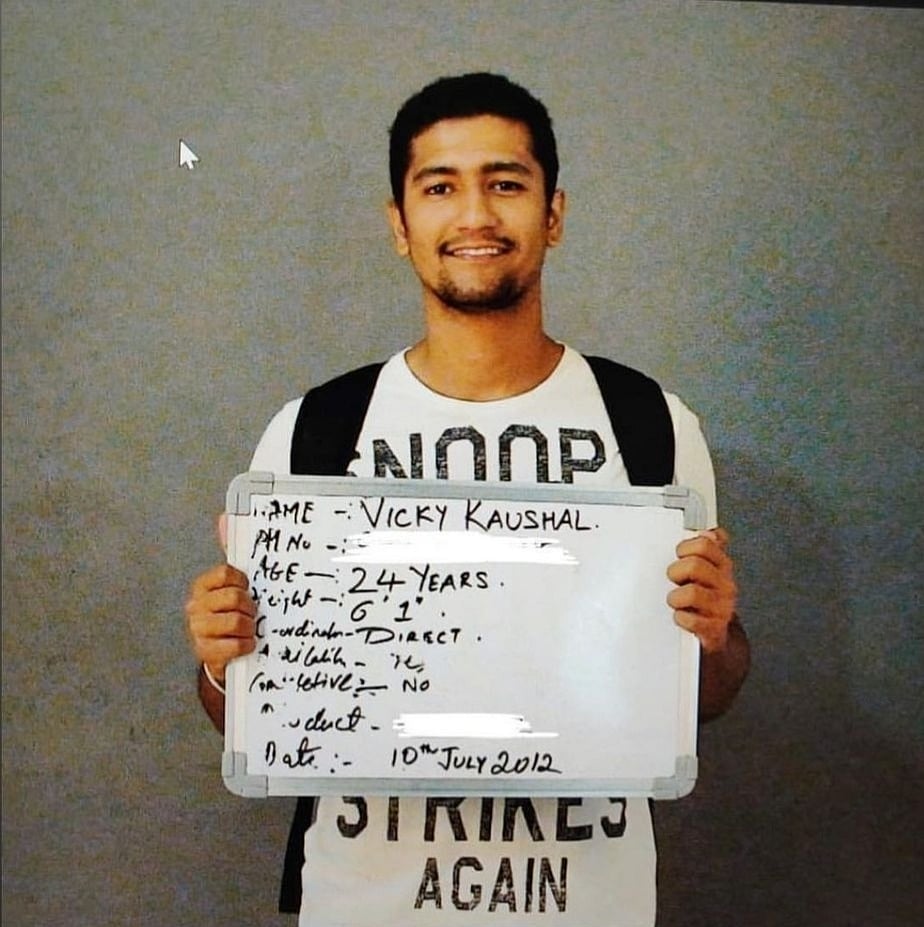 SNOOP
NAME -: VICKY KAUSHAL.
PH No -:
AGE -: 24 YEARS.
Height -: 6' 1".
Coordinator - DIRECT.
Availability - Yes
Competitive :- NO
Product -
Date :- 10th JULY 2012
STRIKES
AGAIN